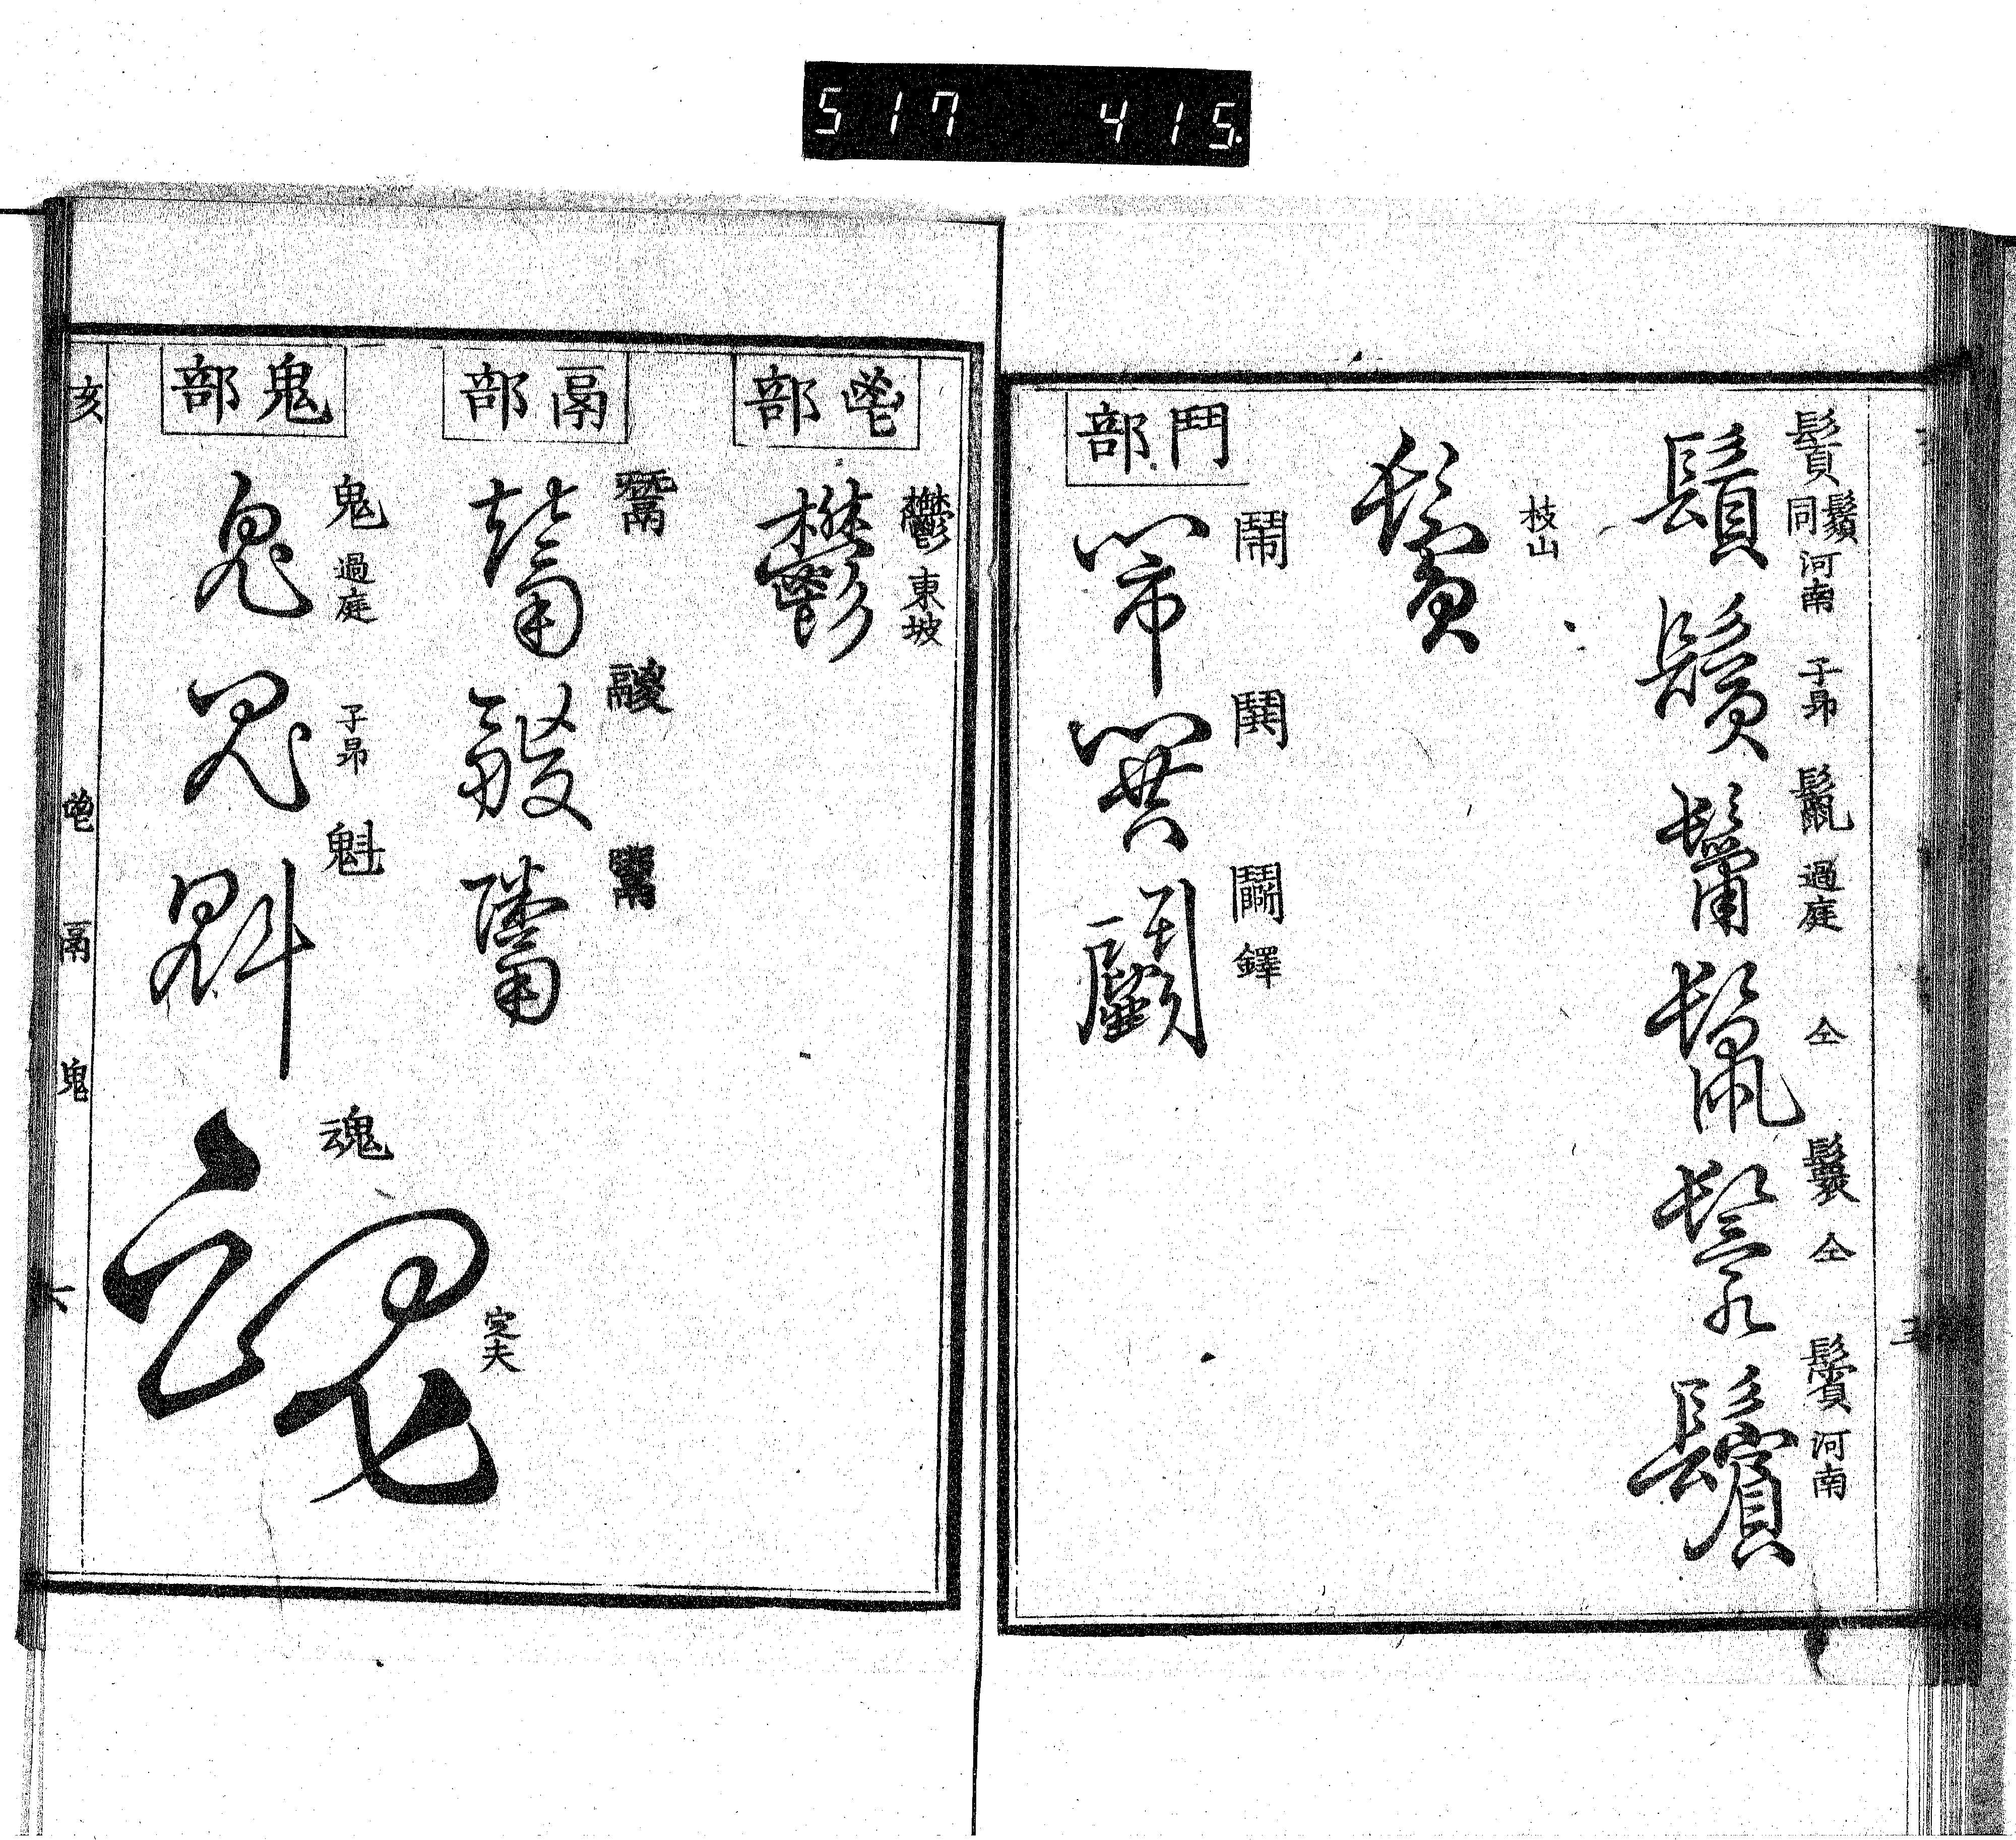 517 415.
鬚
鬚同
河南
子昂
鬣
過庭
仝
仝
鬢
河南
枝山
鬥部
鬧
鬨
鬭
鐸
鬯部
鬱
東坡
鬲部
鬵
鬷
鬻
鬼部
鬼
過庭
子昂
魁
魂
定夫
亥
鬯
鬲
鬼
六